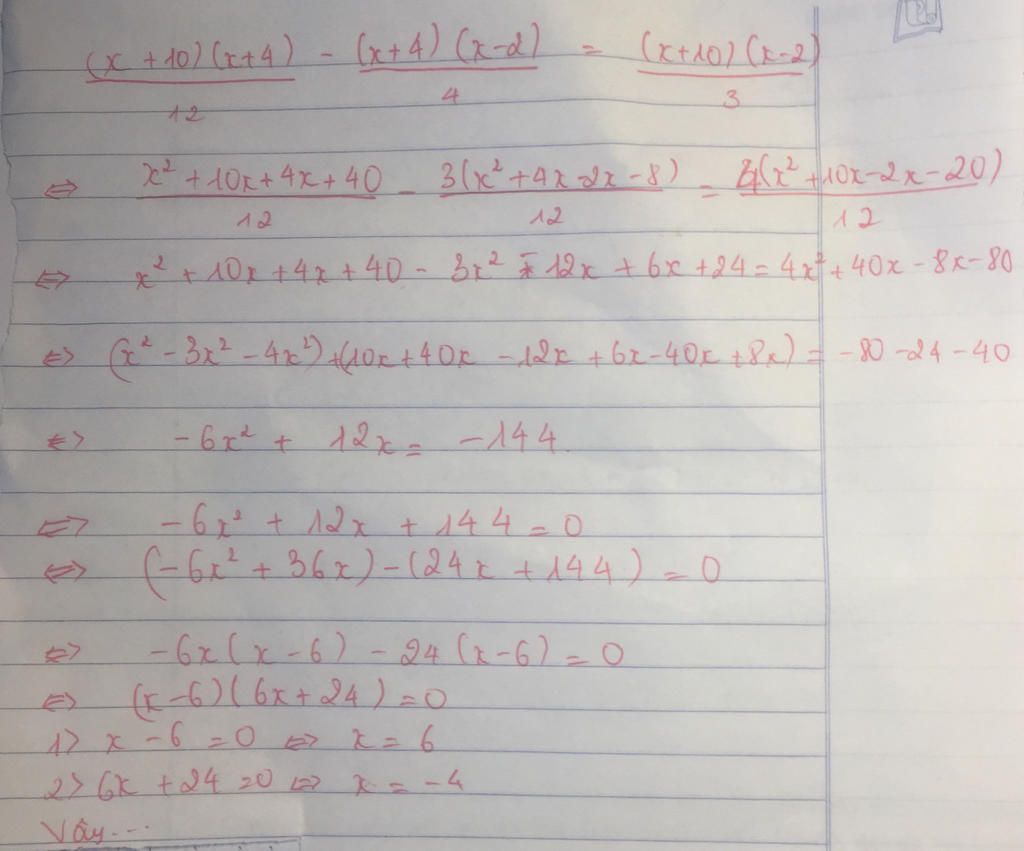 (x + 10)(x+4)/12 - (x+4)(x-2)/4 = (x+10)(x-2)/3
⇔ x² + 10x + 4x + 40/12 - 3(x² + 4x - 2x - 8)/12 = 4(x² + 10x - 2x - 20)/12
⇔ x² + 10x + 4x + 40 - 3x² - 12x + 6x + 24 = 4x² + 40x - 8x - 80
⇔ (x² - 3x² - 4x²) + (10x + 40x - 12x + 6x - 40x + 8x) = -80 - 24 - 40
⇔ -6x² + 12x = -144
⇔ -6x² + 12x + 144 = 0
⇔ (-6x² + 36x) - (24x + 144) = 0
⇔ -6x(x - 6) - 24(x - 6) = 0
⇔ (x - 6)(6x + 24) = 0
1> x - 6 = 0 ⇔ x = 6
2> 6x + 24 = 0 ⇔ x = -4
Vây...